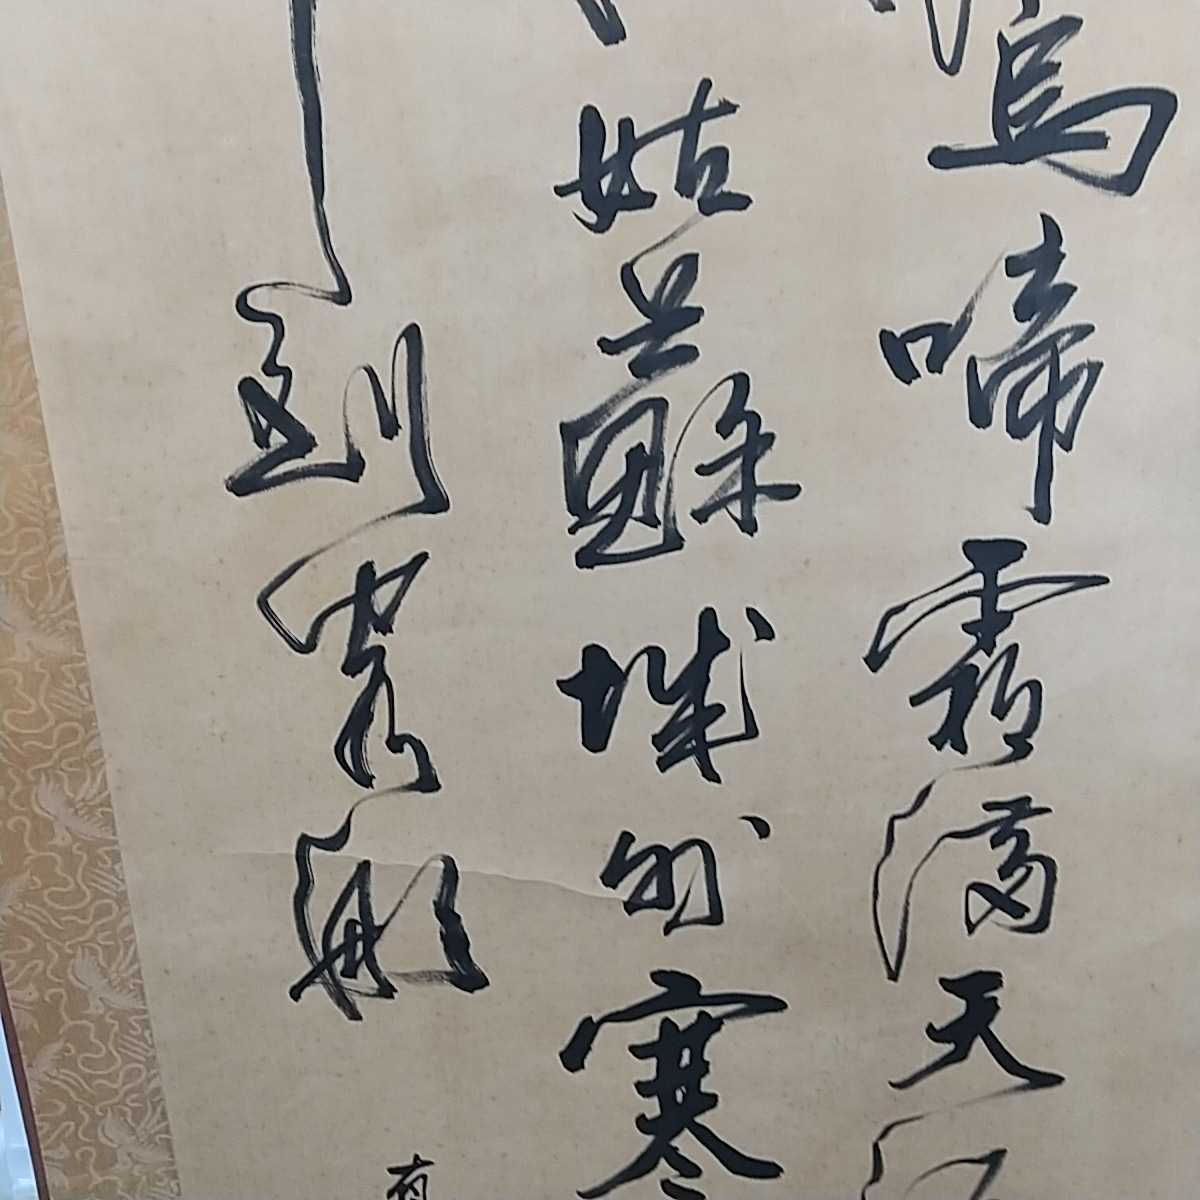 烏啼霜滿天江
姑蘇城外寒
到客船